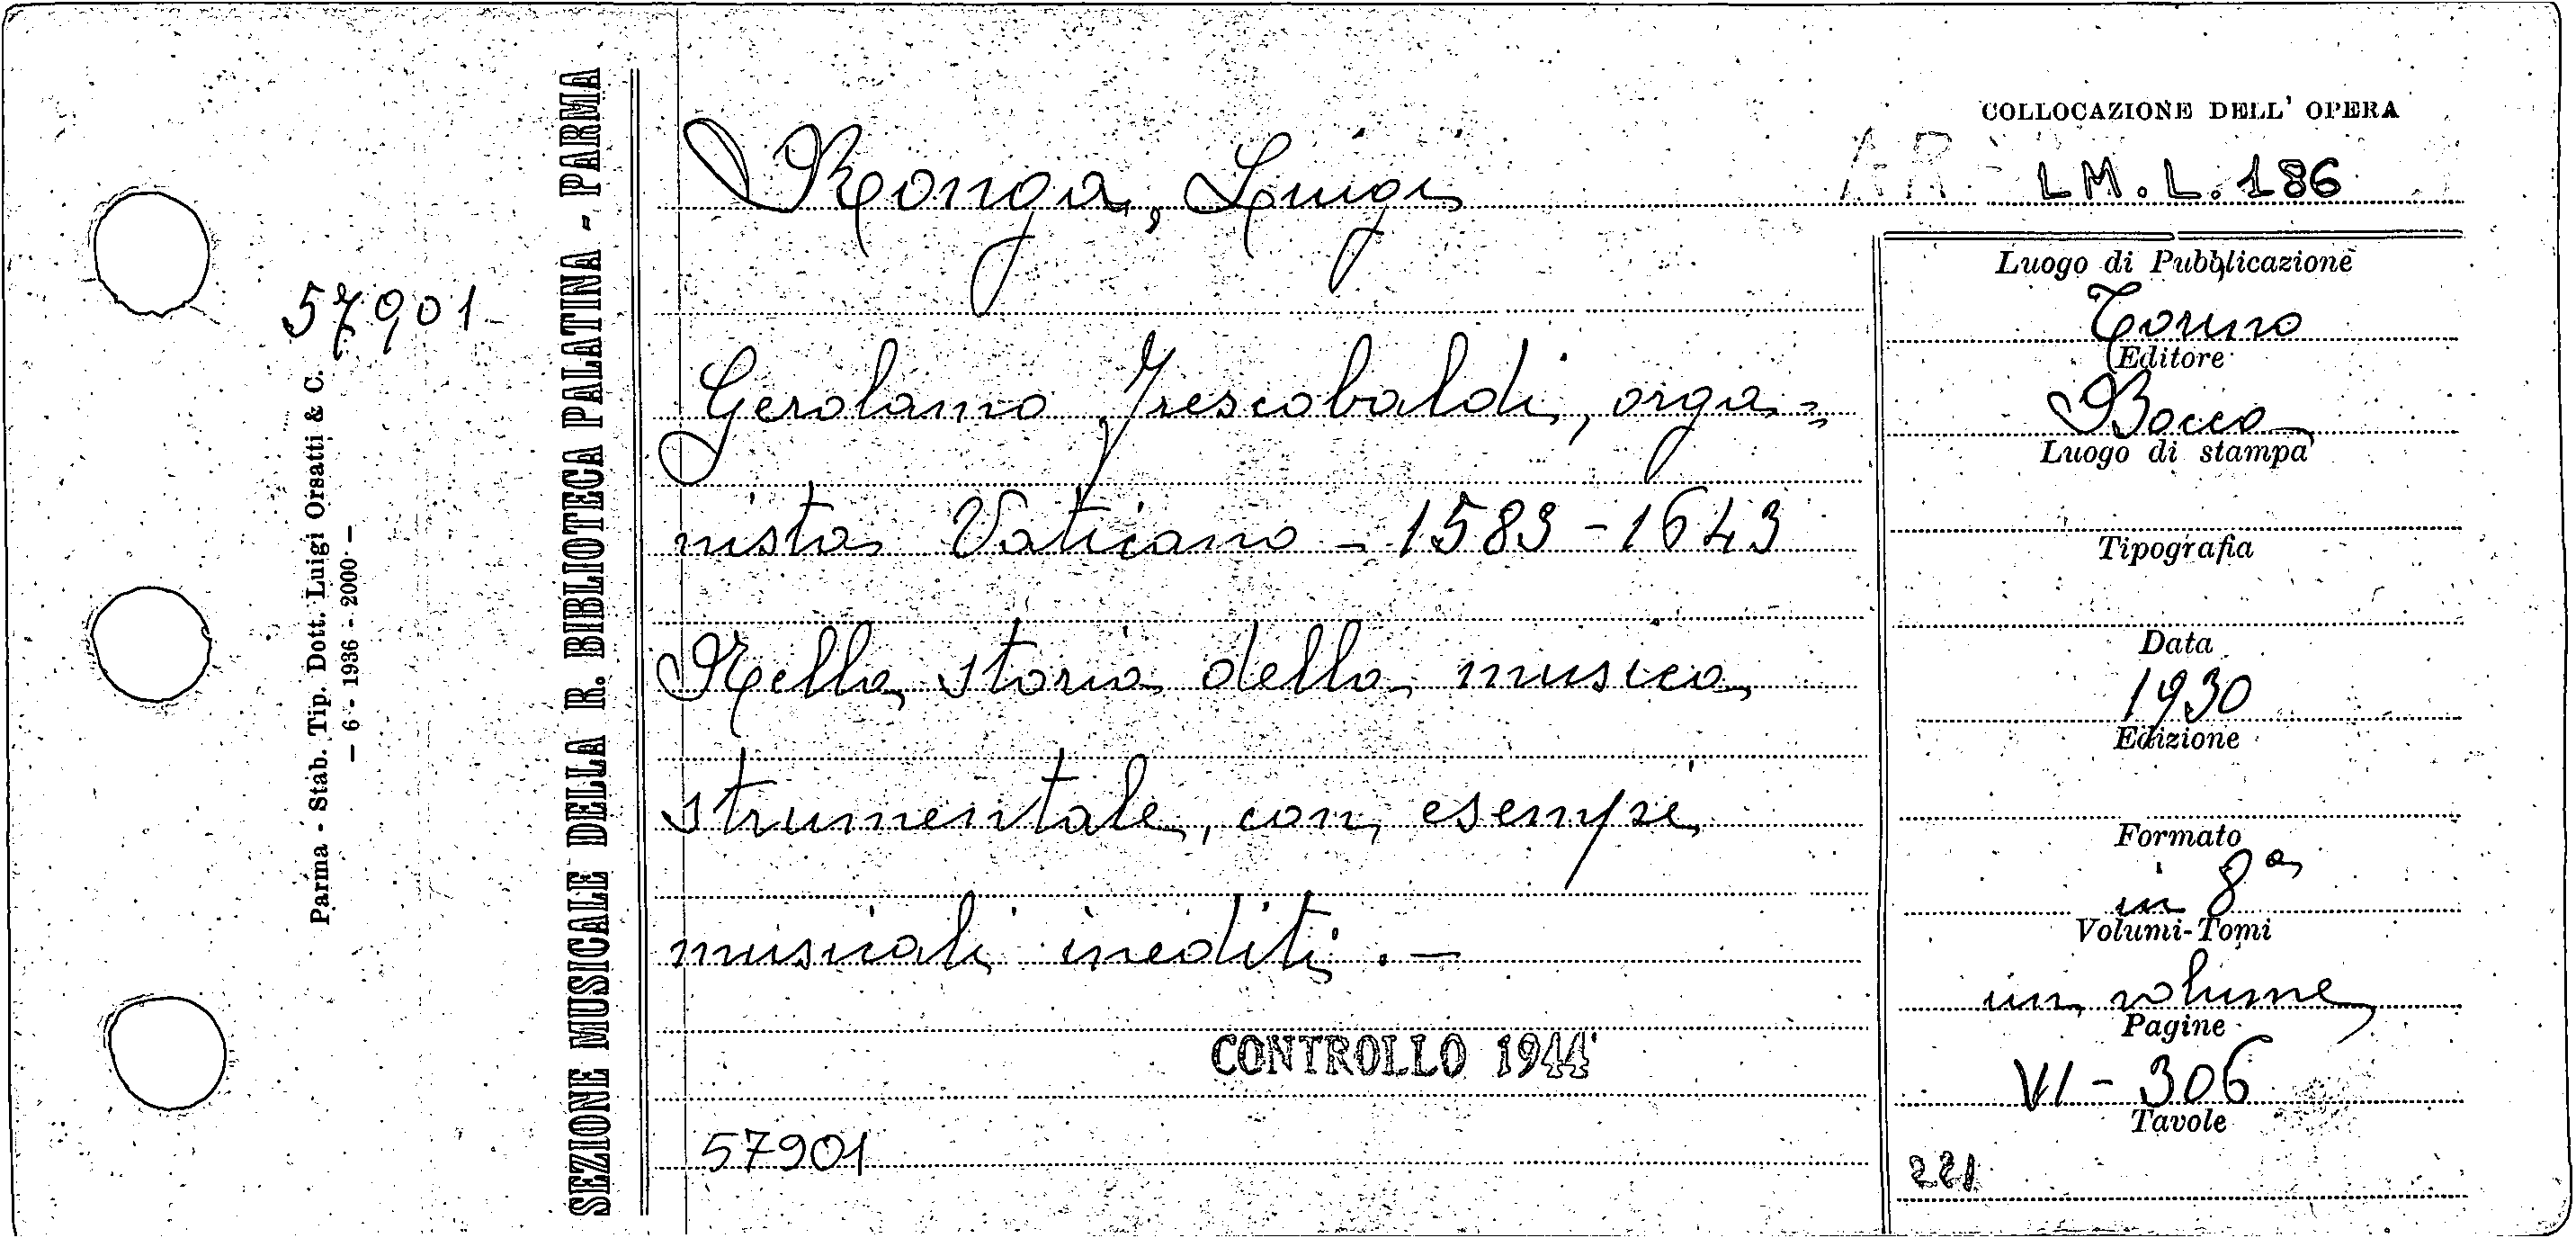 57901
Parma - Stab. Tip. Dott. Luigi Orsatti & C.
— 6 - 1936 - 2000 —
SEZIONE MUSICALE DELLA R. BIBLIOTECA PALATINA - PARMA
Ronga, Luigi
Gerolamo Frescobaldi, orga=
nista Vaticano - 1583 - 1643
Nella storia della musica
strumentale, con esempi
musicali inediti. —
CONTROLLO 1944
57901
COLLOCAZIONE DELL' OPERA
LM. L. 186
Luogo di Pubblicazione
Torino
Editore
Bocca
Luogo di stampa
Tipografia
Data
1930
Edizione
Formato
in 8ª
Volumi-Tomi
un volume
Pagine
VI - 306
Tavole